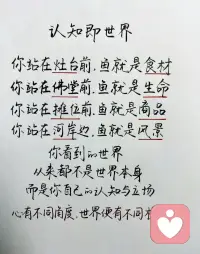 认知即世界
你站在灶台前,鱼就是食材
你站在佛堂前,鱼就是生命
你站在摊位前,鱼就是商品
你站在河岸边,鱼就是风景
你看到的世界
从来都不是世界本身
而是你自己的认知与立场
心有不同角度,世界便有不同